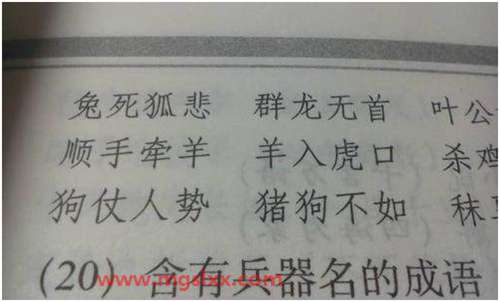 兔死狐悲 群龙无首 叶公
顺手牵羊 羊入虎口 杀鸡
狗仗人势 猪狗不如 秣
(20) 含有兵器名的成语
www.mgslxx.com